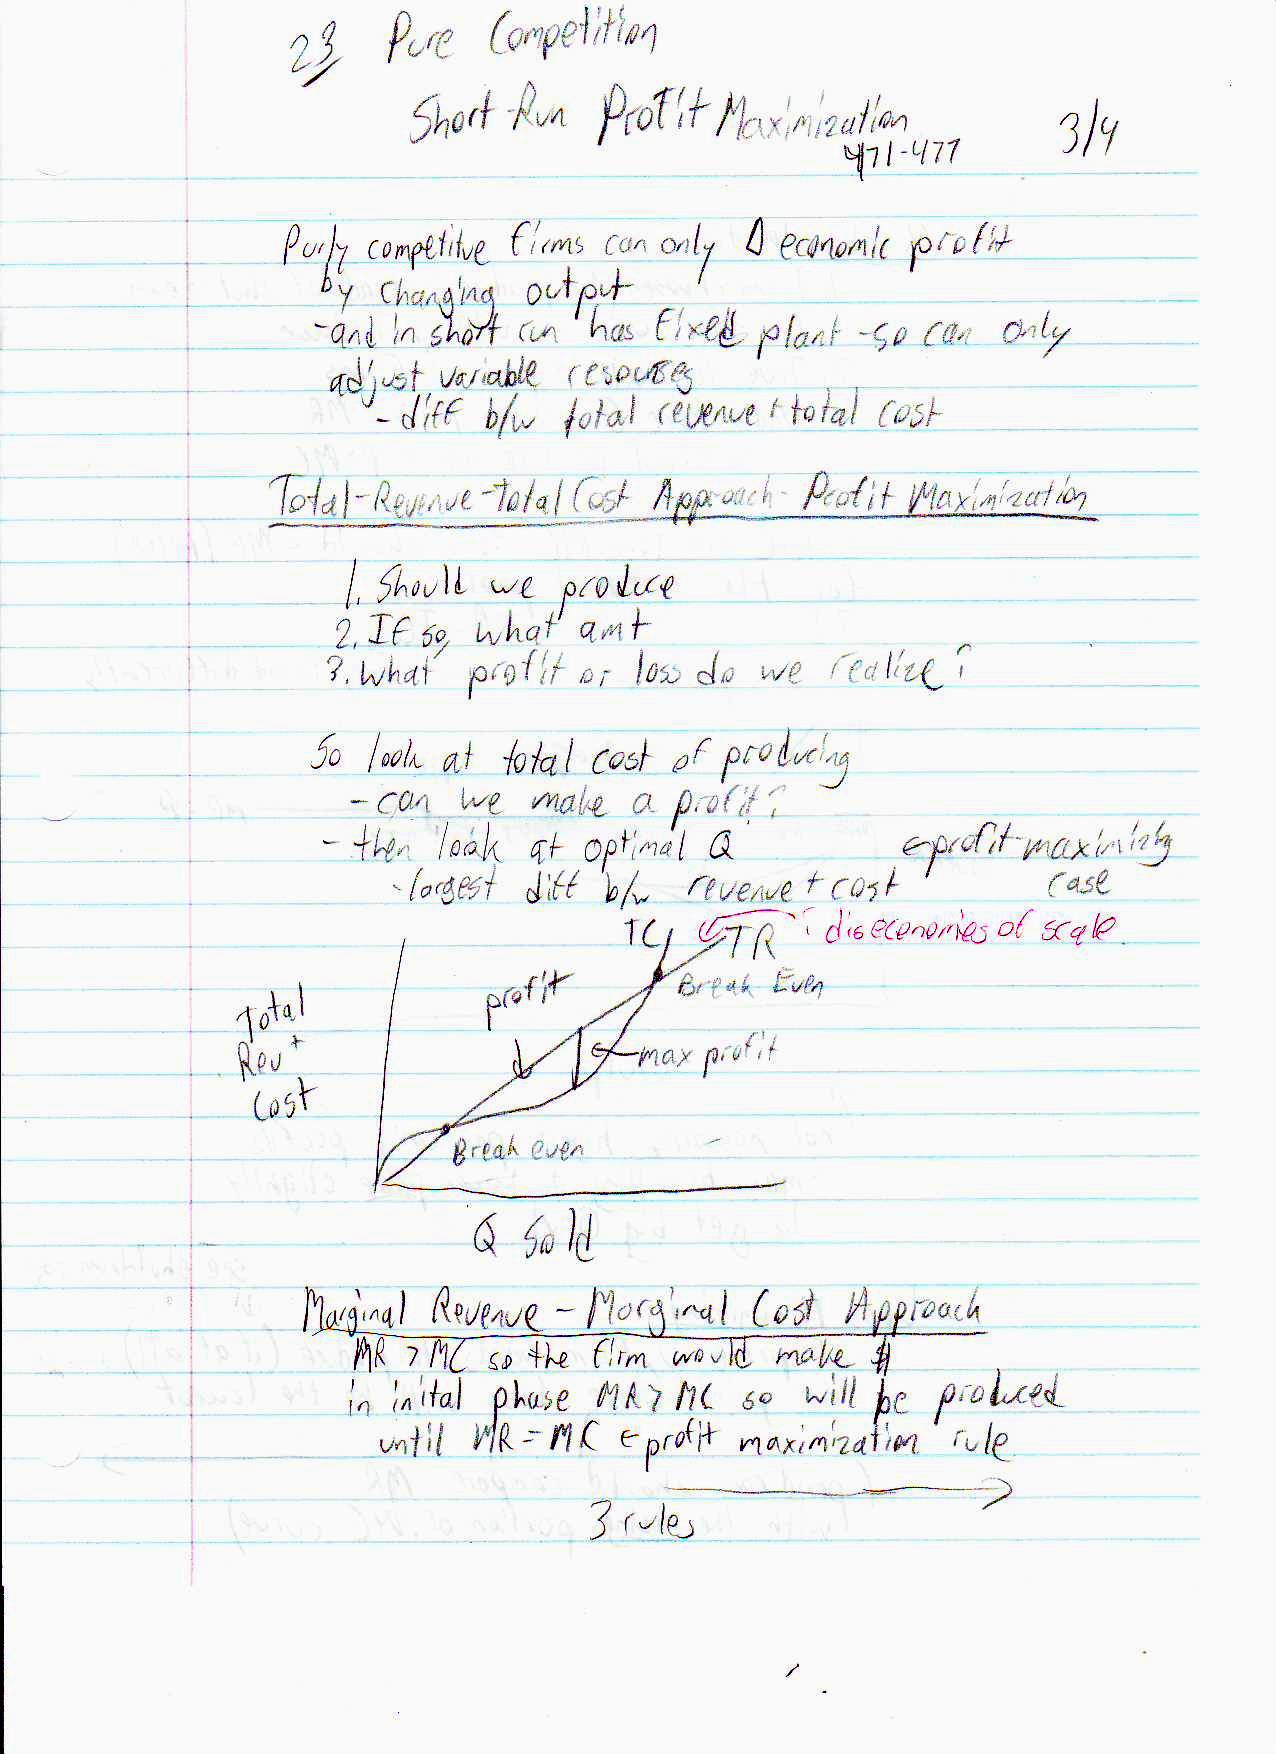 23 Pure Competition
Short-Run Profit Maximization
471-477
3/4
Purly competitve firms can only Δ economic profit
by changing output
-and in short run has fixed plant -so can only
adjust variable resources
- diff b/w total revenue + total cost
Total-Revenue-Total Cost Approach- Profit Maximization
1. Should we produce
2. If so, what amt
3. What profit or loss do we realize?
So look at total cost of producing
- can we make a profit?
- then look at optimal Q ← profit-maximizing
- largest diff b/w revenue + cost case
TC TR : diseconomies of scale.
profit
Break Even
Total
Rev +
Cost
max profit
Break even
Q Sold
Marginal Revenue - Marginal Cost Approach
MR > MC so the firm would make $
in inital phase MR > MC so will be produced
until MR = MC ← profit maximization rule
3 rules